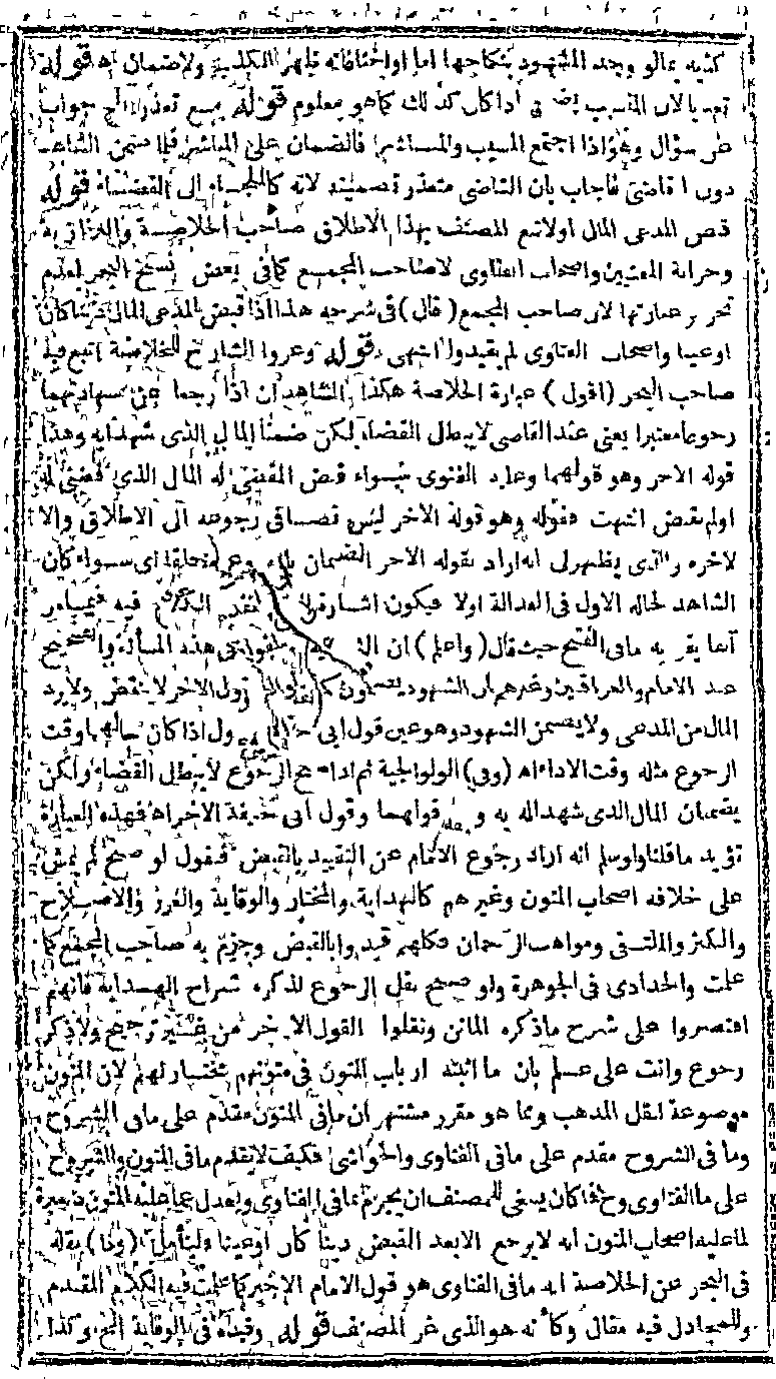 كتبه مالو وجد المشهود بنكاحها اما او اختا فانه ظهر الكذب ولا ضمان اه قوله
تعديا لان التسبيب اداء كل كذلك كما هو معلوم قوله مع تعذر الخ جواب
عن سؤال وهو اذا اجتمع المسبب والمباشر فالضمان على المباشر فلما ضمن الشاهد
دون القاضى فاجاب بان القاضى متعذر تضمينه لانه كالملجاء الى القضاء قوله
قبض المدعى المال اولا تبع المصنف بهذا الاطلاق صاحب الخلاصة والبزازية
وخزانة المفتيين واصحاب الفتاوى لا صاحب المجمع كما فى بعض نسخ البحر لعدم
تحرير عبارتها لان صاحب المجمع (قال) فى شرحه هذا اذا قبض المدعى المال دينا كان
او عينا واصحاب الفتاوى لم يقيدوا انتهى قوله وعزوا الشارح للخلاصة اتبع فيه
صاحب البحر (اقول) عبارة الخلاصة هكذا الشاهدان اذا رجعا عن شهادتهما
رجوعا معتبرا يعنى عند القاضى لا يبطل القضاء لكن ضمنا المال الذى شهدا به وهذا
قوله الاخر وهو قولهما وعليه الفتوى سواء قبض المقضى له المال الذى قضى له
اولم يقبض انتهت فقوله وهو قوله الاخر ليس نصا فى رجوعه الى الاطلاق والا
لاخره والذى يظهر لى انه اراد بقوله الاخر الضمان اى سواء كان
الشاهد لحاله الاول فى العدالة اولا فيكون اشارة تقدم الكلام فيه
آنفا يقربه ما فى الفتح حيث قال (واعلم) ان هذه المسألة والصحيح
عند الامام والعراقيين وغيرهم ان الشهود القول الاخر لا ينقض ولا يرد
المال من المدعى ولا يضمن الشهود وهو عين قول ابى الاول اذا كان حالهما وقت
الرجوع مثله وقت الاداء اه (وفى) الولوالجية ثم اذا صح الرجوع لا يبطل القضاء ولكن
يضمنان المال الذى شهدا له به قولهما وقول ابى حنيفة الاخر اه فهذه العبارة
تؤيد ما قلنا ولو سلم انه اراد رجوع الامام عن التقييد بالقبض فنقول لو صح لم يمش
على خلافه اصحاب المتون وغيرهم كالهداية والمختار والوقاية والغرر والاصلاح
والكنز والملتقى ومواهب الرحمان فكلهم قيدوا بالقبض وجزم به صاحب المجمع كما
علمت والحدادى فى الجوهرة ولو صح نقل الرجوع لذكره شراح الهداية فانهم
اقتصروا على شرح ما ذكره الماتن ونقلوا القول الاخر من غير ترجيح ولا ذكر
رجوع وانت على علم بان ما اثبته ارباب المتون فى متونهم مختار لهم لان المتون
موضوعة لنقل المذهب ومما هو مقرر مشتهر ان ما فى المتون مقدم على ما فى الشروح
وما فى الشروح مقدم على ما فى الفتاوى والحواشى فكيف لا يقدم ما فى المتون والشروح
على ما الفتاوى وح فما كان ينبغى للمصنف ان يجزم بما فى الفتاوى ويعدل عما عليه المتون
لما عليه اصحاب المتون انه لا يرجع الا بعد القبض دينا كان او عينا وليتأمل نقله
فى البحر عن الخلاصة انه ما فى الفتاوى هو قول الامام الاخير كما علمت فيه الكلام المقدم
وللمجادل فيه مقال وكأنه هو الذى غر المصنف قوله وقيده فى الوقاية الخ وكذا